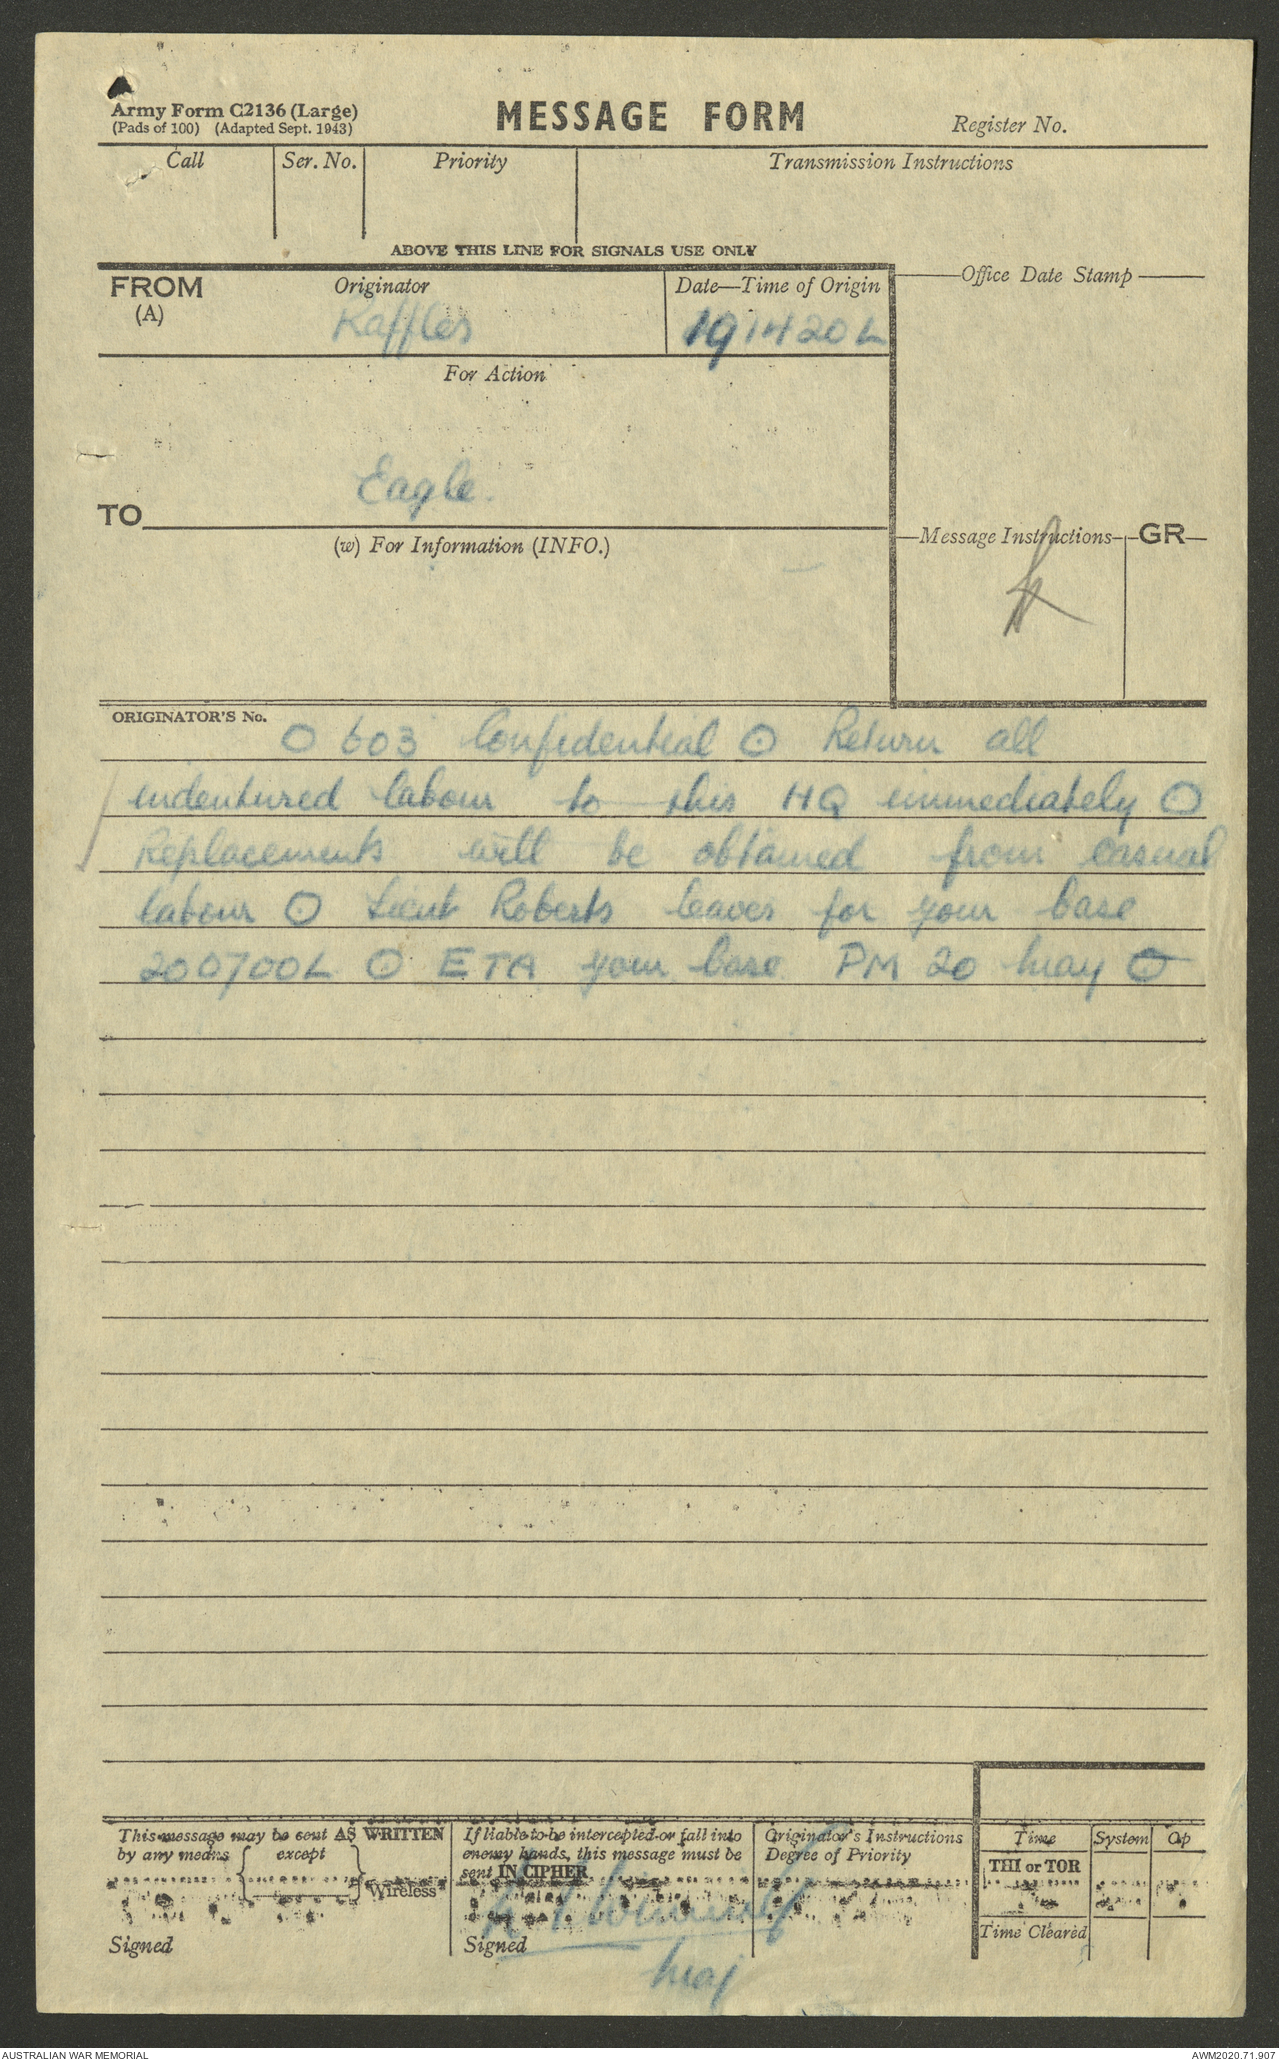 Army Form C2136 (Large)
(Pads of 100) (Adapted Sept. 1943)
MESSAGE FORM
Register No.
Call
Ser. No.
Priority
Transmission Instructions
ABOVE THIS LINE FOR SIGNALS USE ONLY
FROM
(A)
Originator
Raffles
Date—Time of Origin
191420L
Office Date Stamp
For Action
Eagle.
TO
(w) For Information (INFO.)
Message Instructions
GR
ORIGINATOR'S No.
O 603 Confidential ⊙ Return all
indentured labour to this HQ immediately ⊙
Replacements will be obtained from casual
labour ⊙ Lieut Roberts leaves for your base
200700L ⊙ ETA your base PM 20 May ⊙
This message may be sent AS WRITTEN
by any means
except
Wireless
Signed
If liable to be intercepted or fall into
enemy hands, this message must be
sent IN CIPHER
Signed
Maj
Originator's Instructions
Degree of Priority
Time
System
Op
THI or TOR
Time Cleared
AUSTRALIAN WAR MEMORIAL
AWM2020.71.907